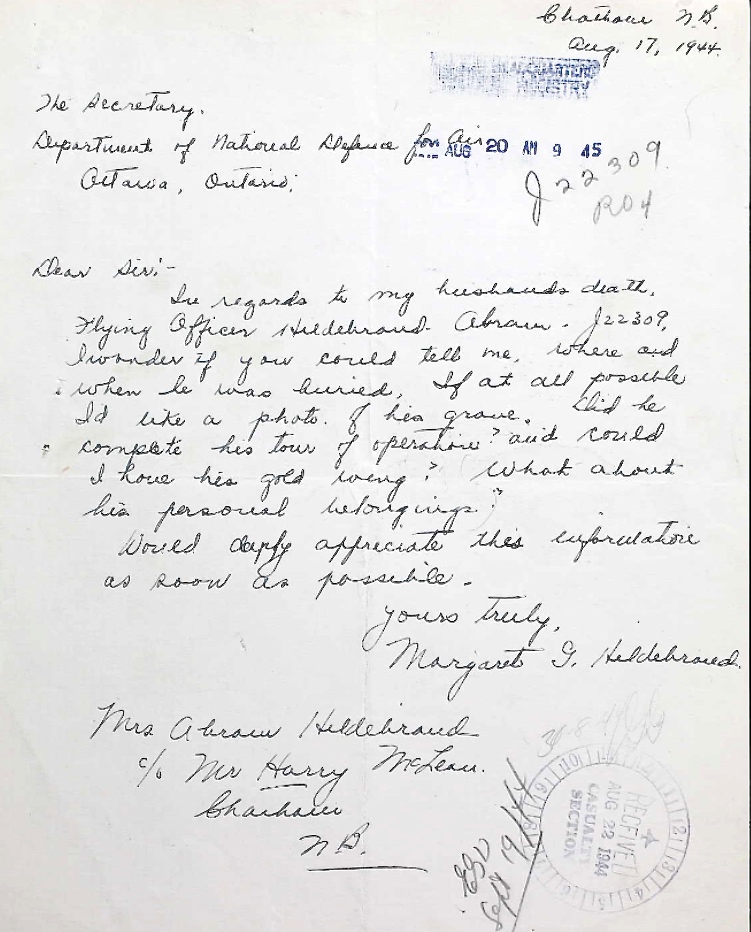 Chatham N.B.
Aug. 17, 1944.
HEADQUARTERS
REGISTRY
The Secretary.
Department of National Defence for Air
AUG 20 AM 9 45
Ottawa, Ontario;
J22309
R04
Dear Sir:-
In regards to my husbands death,
Flying Officer Hildebrand. Abram. J22309,
I wonder if you could tell me, where and
when he was buried, If at all possible
I'd like a photo. of his grave. Did he
complete his tour of operations? and could
I have his gold wing? What about
his personal belongings?
Would deeply appreciate this information
as soon as possible.
yours truly,
Margaret G. Hildebrand.
Mrs Abram Hildebrand
c/o Mr Harry McLean.
Chatham
N.B.
30-8-44
Sept 19/44
RECEIVED
AUG 22 1944
CASUALTY
SECTION